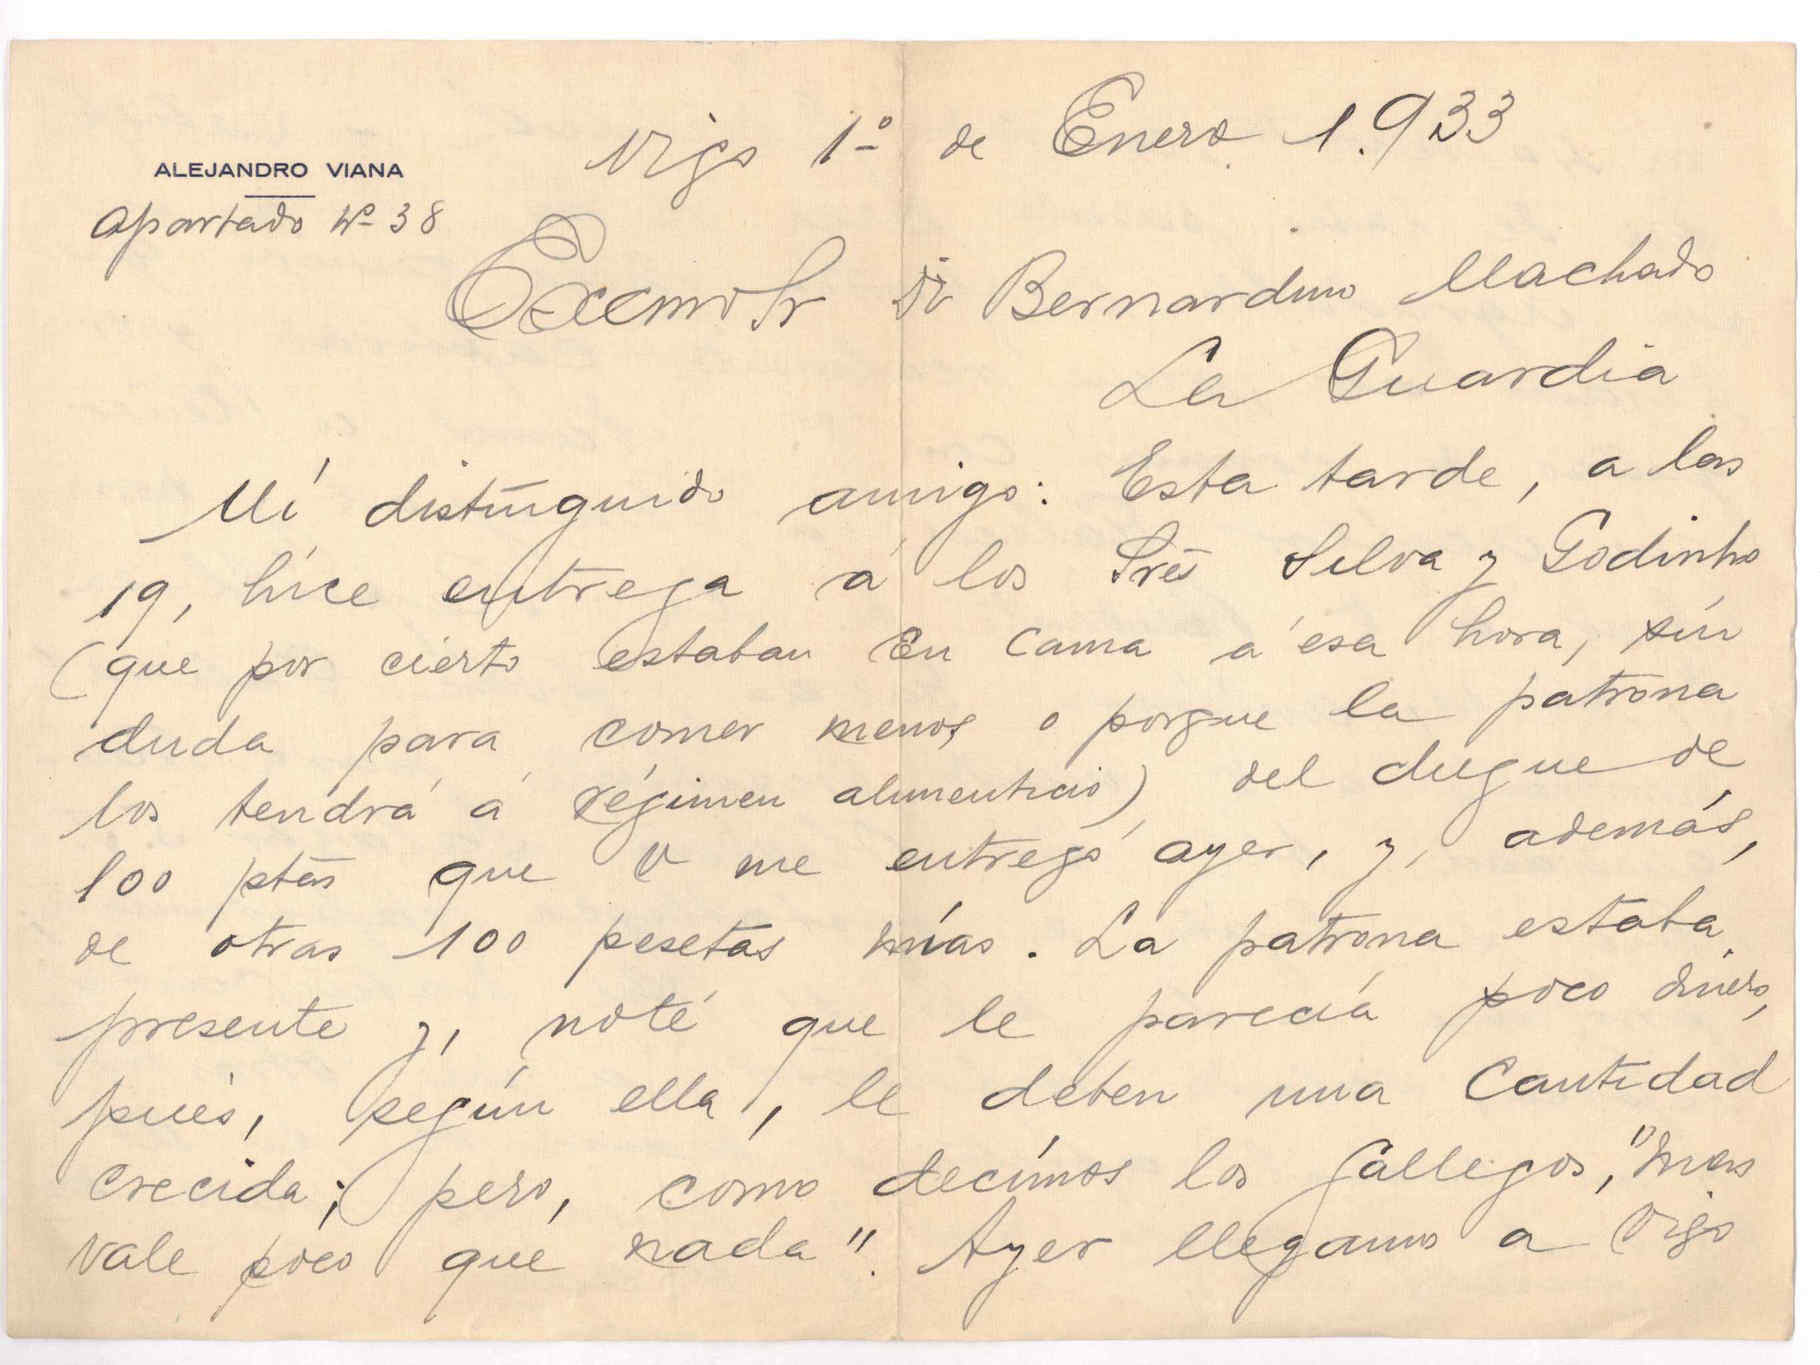 ALEJANDRO VIANA
Apartado Nº 38
Vigo 1º de Enero 1.933
Excmo Sr Dr Bernardino Machado
La Guardia
Mí distinguido amigo: Esta tarde, a las
19, híce entrega á los Sres Silva y Godinho
(que por cierto estaban en cama a esa hora, sin
duda para comer menos o porque la patrona
los tendrá á régimen alimenticio) del duque de
100 ptas que V me entregó ayer, y, además,
de otras 100 pesetas mías. La patrona estaba
presente y, noté que le parecía poco dinero,
pués, según ella, le deben una cantidad
crecida; pero, como decímos los gallegos, "mas
vale poco que nada". Ayer llegamos a Vigo